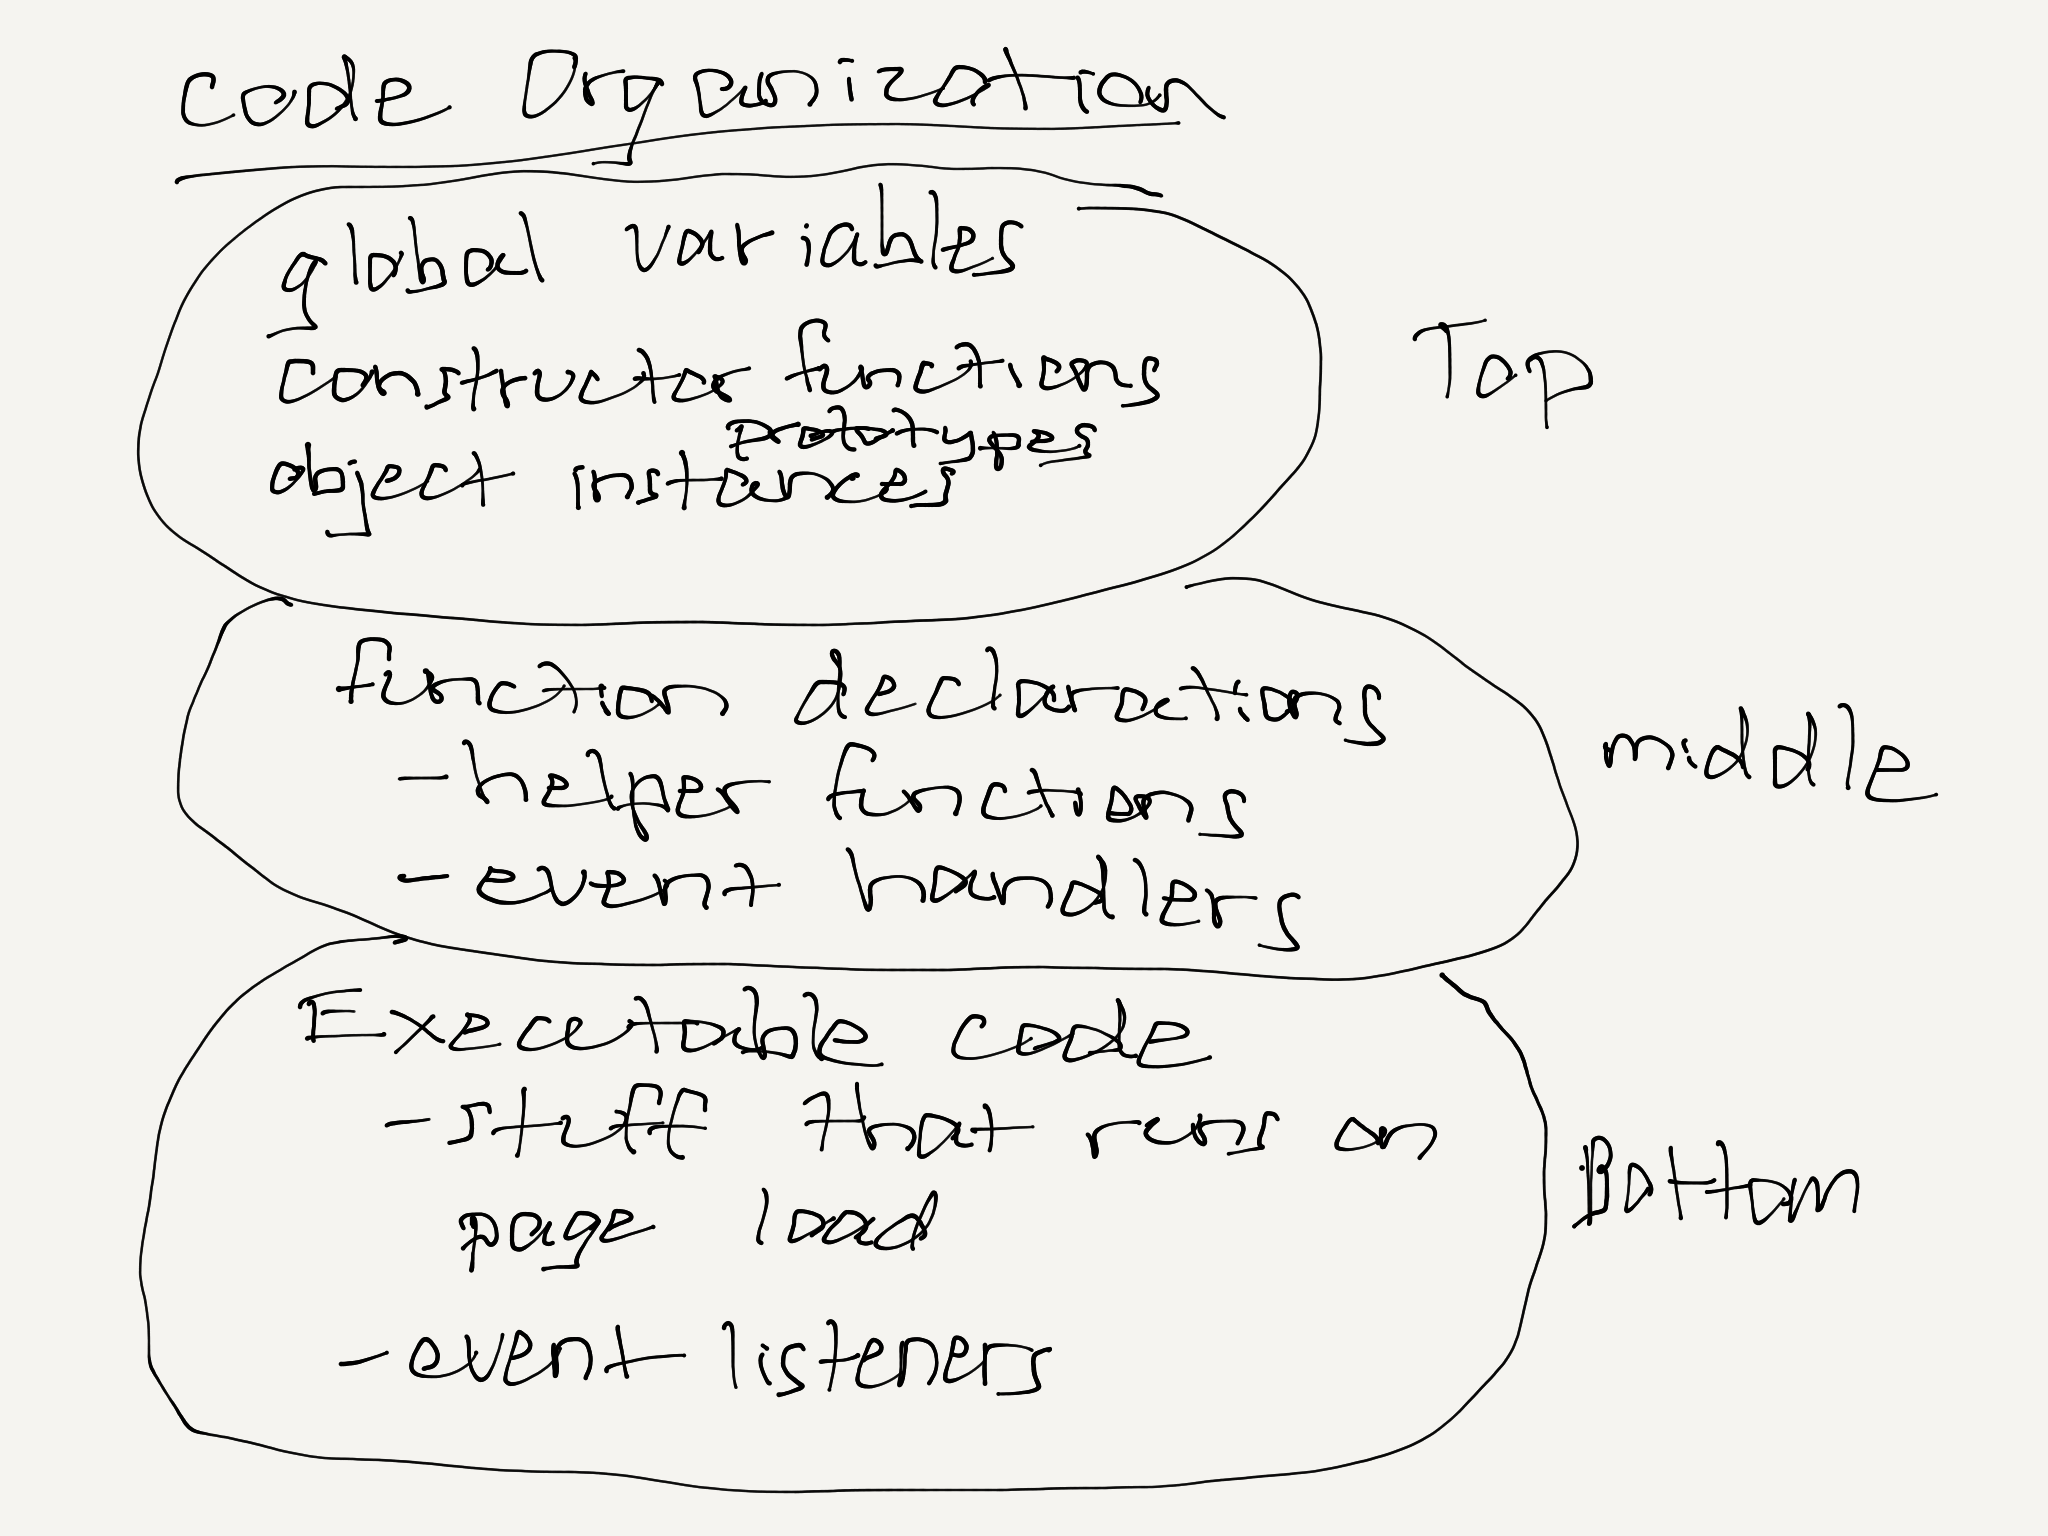 code Organization
global variables
constructor functions
prototypes
object instances
Top
function declarations
- helper functions
- event handlers
middle
Executable code
- stuff that runs on
page load
- event listeners
Bottom